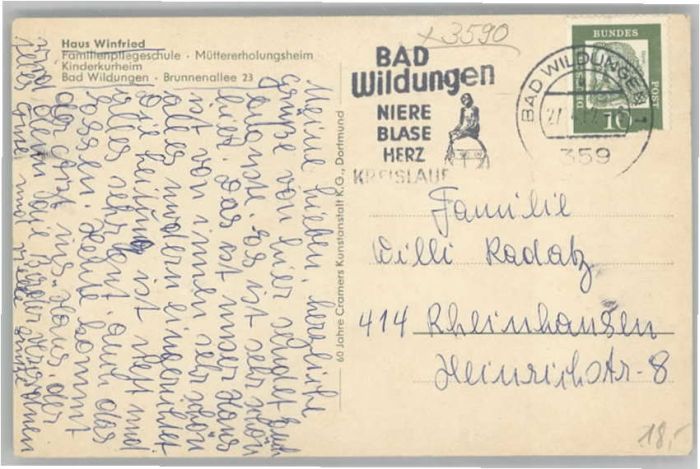 Haus Winfried
Familienpflegeschule · Müttererholungsheim
Kinderkurheim
Bad Wildungen · Brunnenallee 23
x 3590
BAD
Wildungen
NIERE
BLASE
HERZ
KREISLAUF
BAD WILDUNGEN
359
DEUTSCHE
BUNDES
POST
10
60 Jahre Cramers Kunstanstalt K.G., Dortmund
Meine Lieben, herzliche
Grüße von hier sendet Euch
es ist sehr schön
hier. Das ist unser Haus
ist von innen sehr schön
alles modern eingerichtet
Die Heizung ist nett und
alles sehr gut, auch das
Essen. Heute kommt
der Arzt ins Haus, der
wird
alles Gute und
Familie
Willi Radatz
414 Rheinhausen
Heinrichstr. 8
18,-